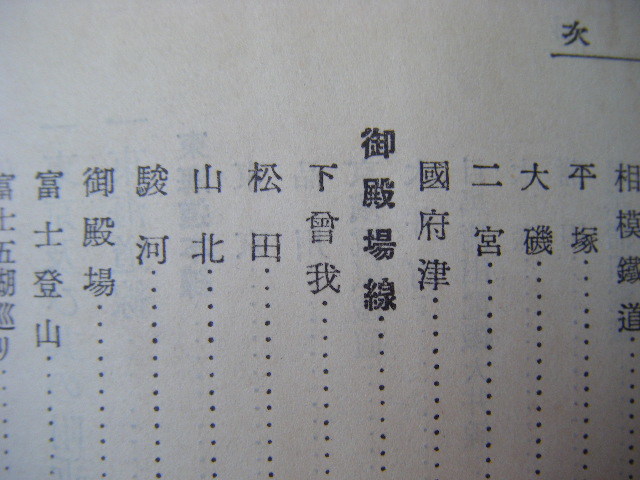 次
相模鐵道
平塚
大磯
二宮
國府津
御殿場線
下曾我
松田
山北
駿河
御殿場
富士登山
富士五湖巡り